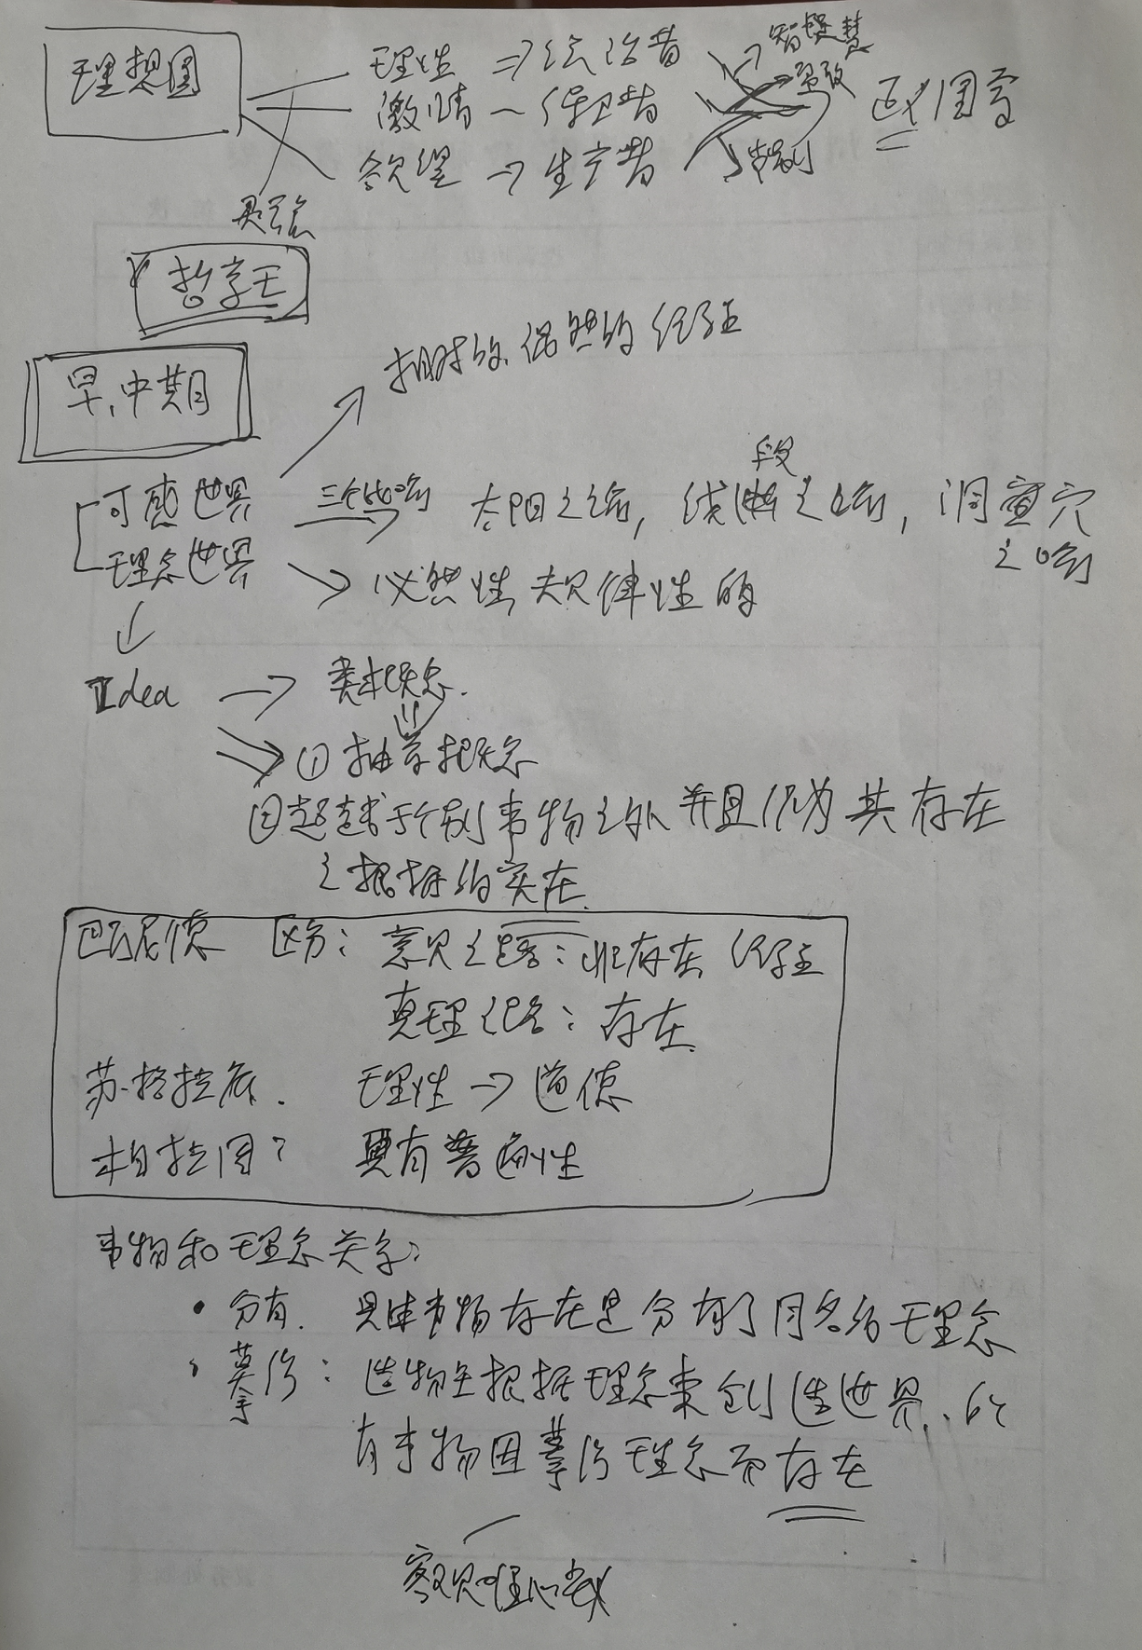 理想国
理性 ⇒ 统治者 → 智慧
激情 ~ 保卫者 勇敢 正义国家
欲望 → 生产者 节制
灵魂
哲学王
早、中期
相对的 偶然的 经验
可感世界 三个比喻 太阳之喻, 线段之喻, 洞穴之喻
理念世界 必然性 规律性的
Idea → 类概念.
① 抽象概念
②超越于个别事物之外并且作为其存在
之根据的实在
巴门尼德 区分: 意见之路: 非存在 经验
真理之路: 存在
苏格拉底. 理性 → 道德
柏拉图: 具有普遍性
事物和理念关系:
• 分有. 具体事物存在是分有了同名的理念
• 摹仿: 造物主根据理念来创造世界. 所
有事物因摹仿理念而存在
客观唯心主义